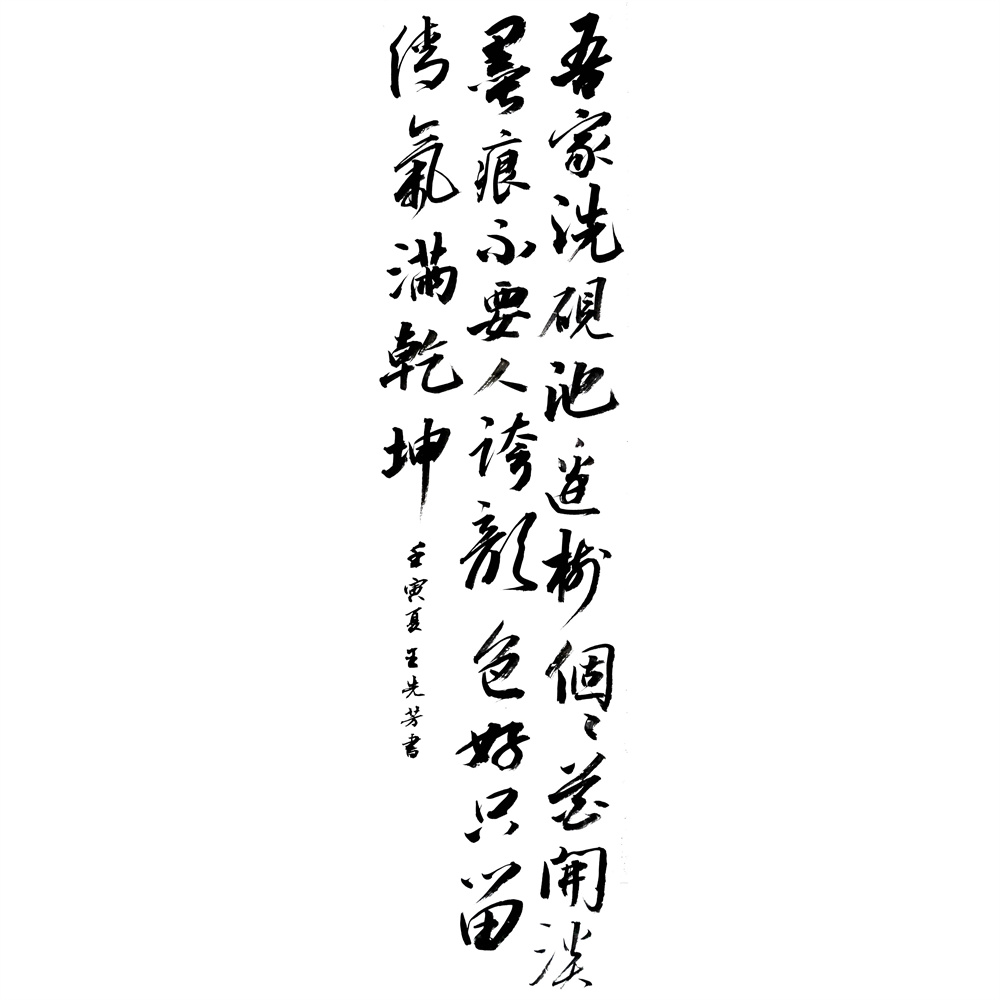 吾家洗硯池邊樹個々花開淡
墨痕不要人誇顏色好只留
清氣滿乾坤
壬寅夏王先芳書